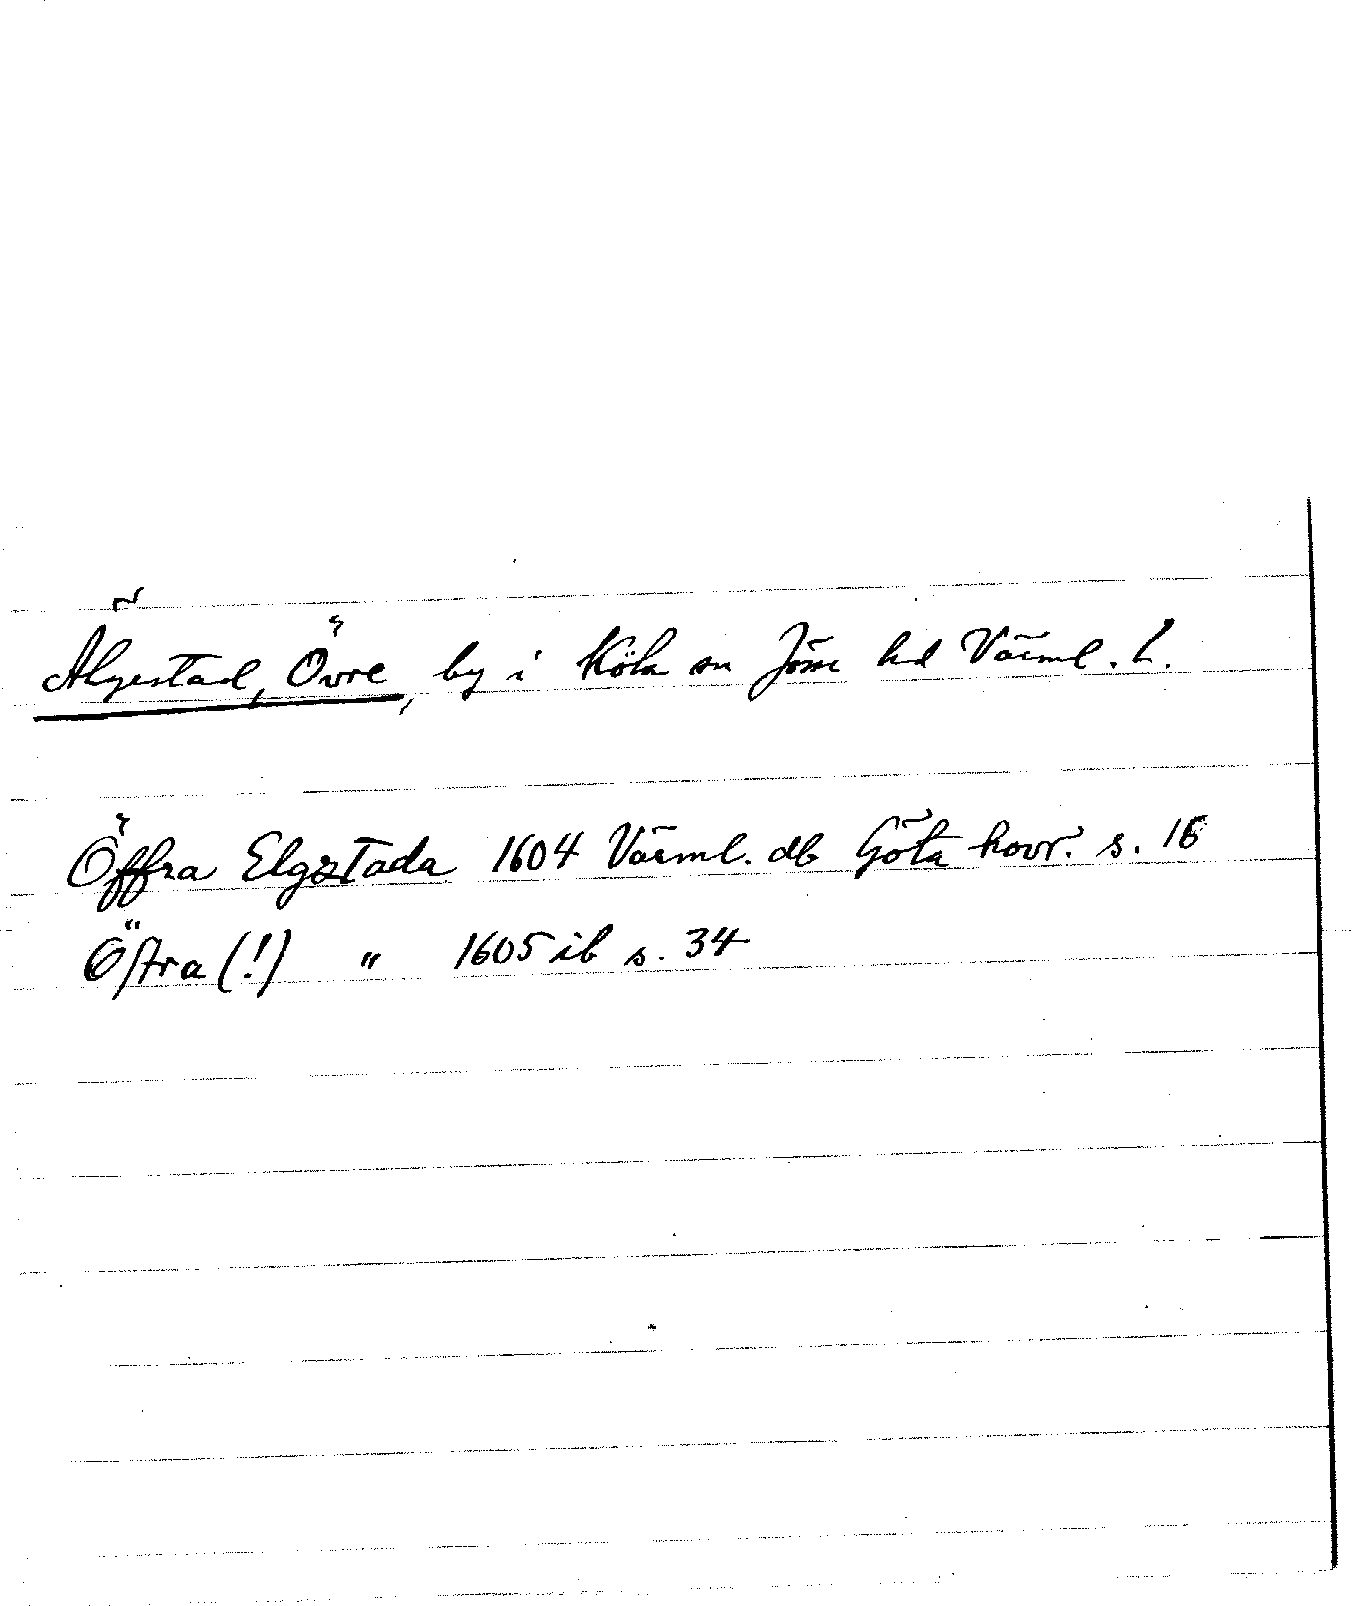 Älgestad, Övre, by i Köla sn Jösse hd Värml. L.
Öffra Elgstada 1604 Värml. db Göta hovr. s. 16
Öftra (!) " 1605 ib s. 34